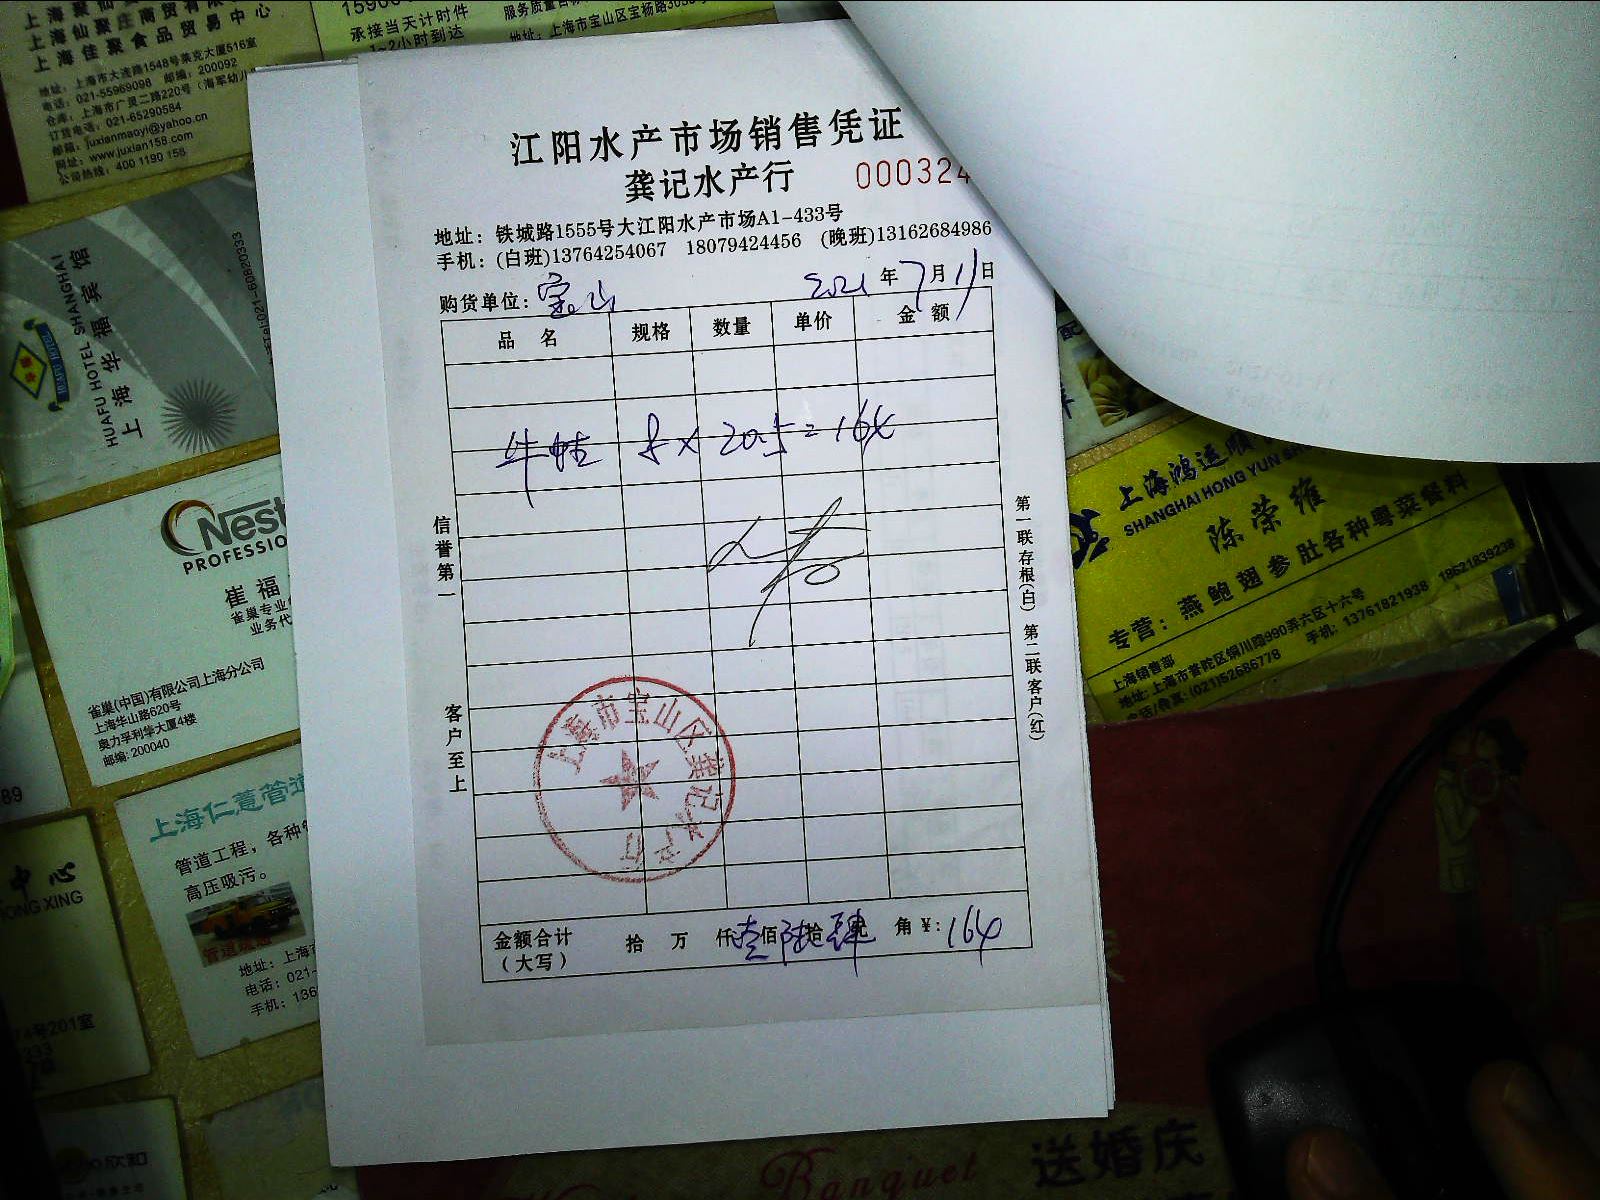 上海佳聚食品贸易中心
地址：上海市大连路1548号莱克大厦516室
电话：021-55969098 邮编：200092
仓库：上海市广灵二路220号（海军幼儿
订货电话：021-65290584
邮箱：juxianmaoyi@yahoo.cn
网址：www.juxian158.com
公司热线：400 1190 158
承接当天计时件
1~2小时到达
江阳水产市场销售凭证
龚记水产行
000324
地址：铁城路1555号大江阳水产市场A1-433号
手机：(白班)13764254067 18079424456 (晚班)13162684986
购货单位：宝山 2021年7月11日
品名 规格 数量 单价 金额
牛蛙 8×20.5=164
信誉第一
客户至上
第一联存根(白) 第二联客户(红)
上海市宝山区龚记水产行
金额合计（大写） 拾 万 仟壹佰陆拾肆元 角 ¥：164
上海华福宾馆
HUAFU HOTEL SHANGHAI
Nest
PROFESSIO
崔福
雀巢专业
业务代
雀巢(中国)有限公司上海分公司
上海华山路620号
奥力孚利华大厦4楼
邮编: 200040
上海仁薏管道
管道工程，各种
高压吸污。
管道疏通
地址：上海
电话：021-
手机：136
89
中心
ONG XING
74号201室
欣和
上海鸿运顺
SHANGHAI HONG YUN SH
陈荣维
专营：燕鲍翅参肚各种粤菜餐料
上海销售部
地址：上海市普陀区铜川路990弄六区十六号
电话/传真：(021)52686778 手机：13761821938 18621839238
Banquet
送婚庆